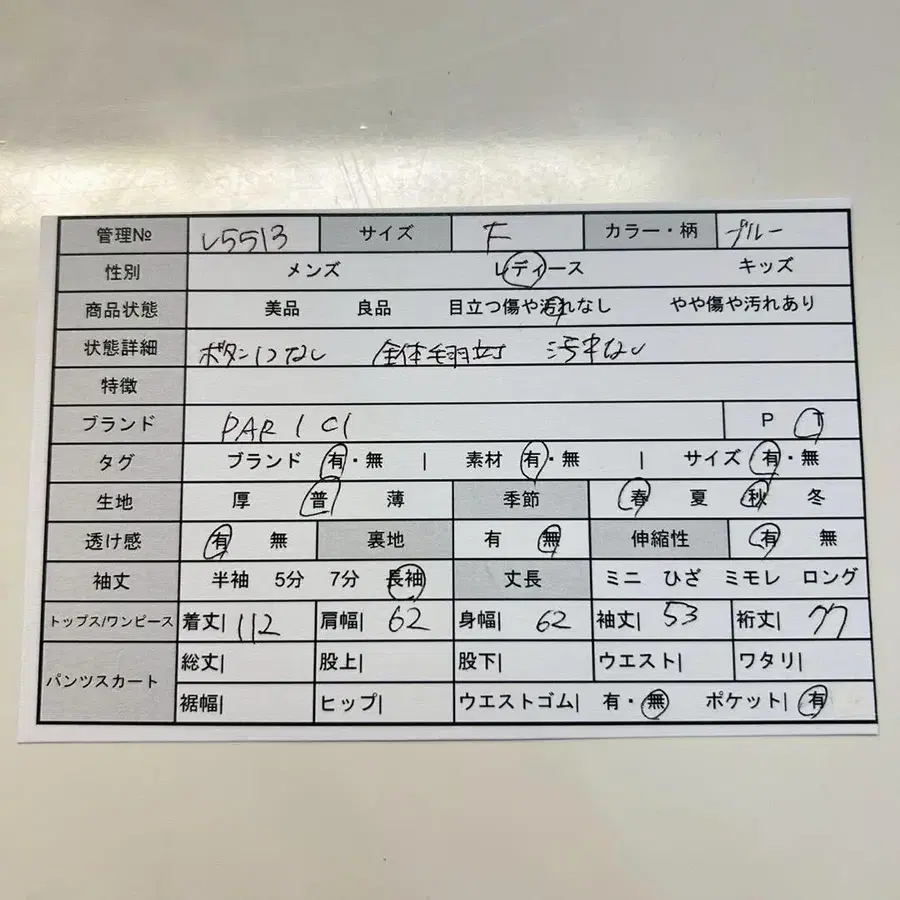 管理№ L5513 サイズ F カラー・柄 ブルー
性別 メンズ レディース キッズ
商品状態 美品 良品 目立つ傷や汚れなし やや傷や汚れあり
状態詳細 ボタン1つなし 全体毛羽立ち 汚れなし
特徴
ブランド PAR I CI P T
タグ ブランド 有・無 | 素材 有・無 | サイズ 有・無
生地 厚 普 薄 季節 春 夏 秋 冬
透け感 有 無 裏地 有 無 伸縮性 有 無
袖丈 半袖 5分 7分 長袖 丈長 ミニ ひざ ミモレ ロング
トップス/ワンピース 着丈| 112 肩幅| 62 身幅| 62 袖丈| 53 裄丈| 77
パンツスカート 総丈| 股上| 股下| ウエスト| ワタリ|
裾幅| ヒップ| ウエストゴム| 有・無 ポケット| 有